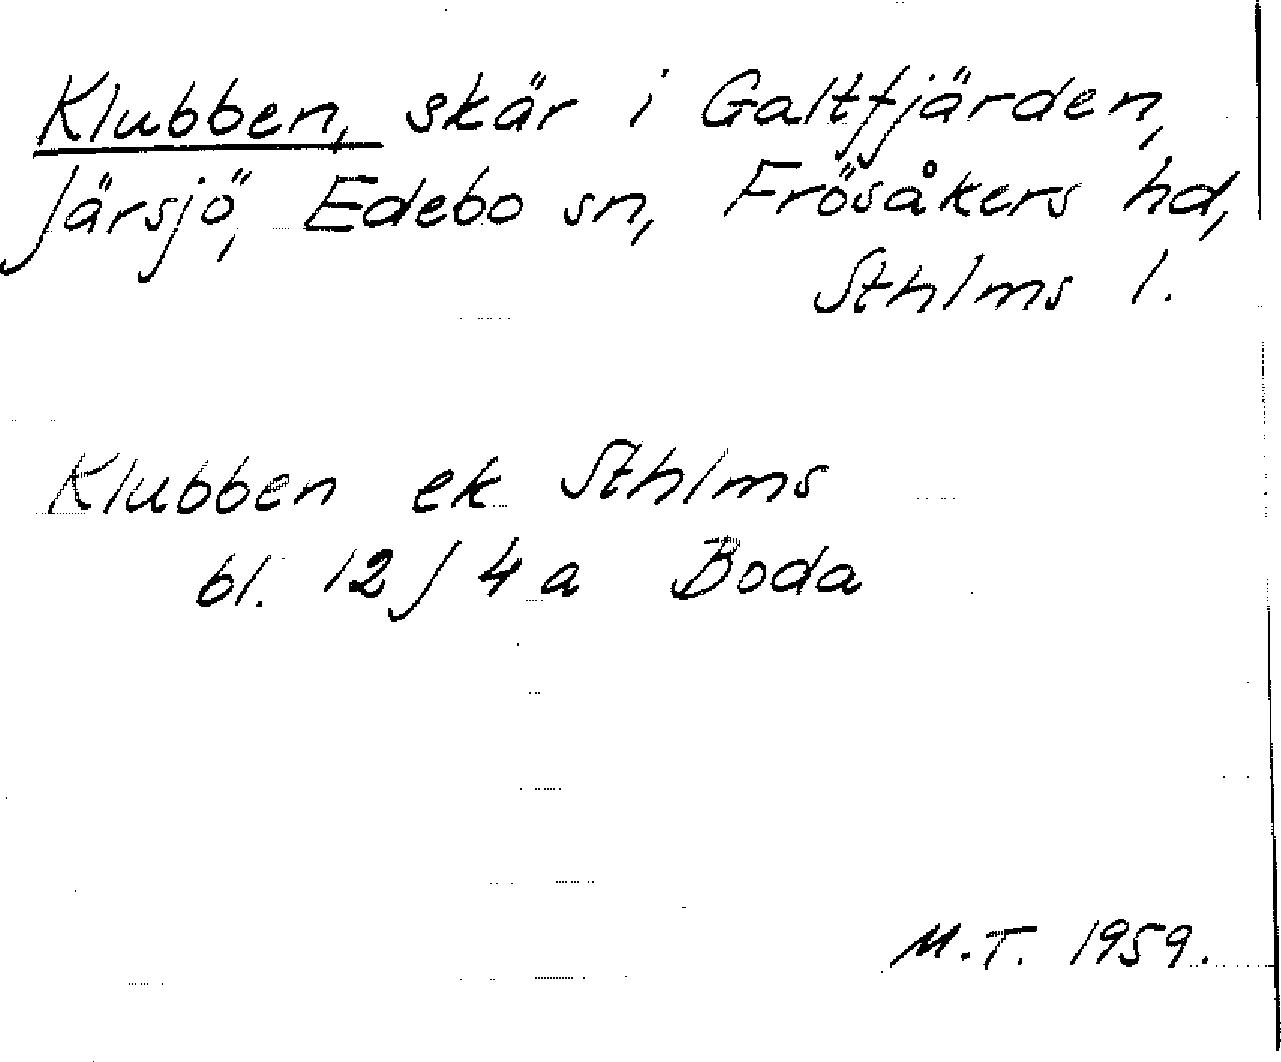 Klubben, skär i Galtfjärden,
Järsjö, Edebo sn, Frösåkers hd,
Sthlms l.
Klubben ek Sthlms
bl. 12J 4a Boda
M.T. 1959.